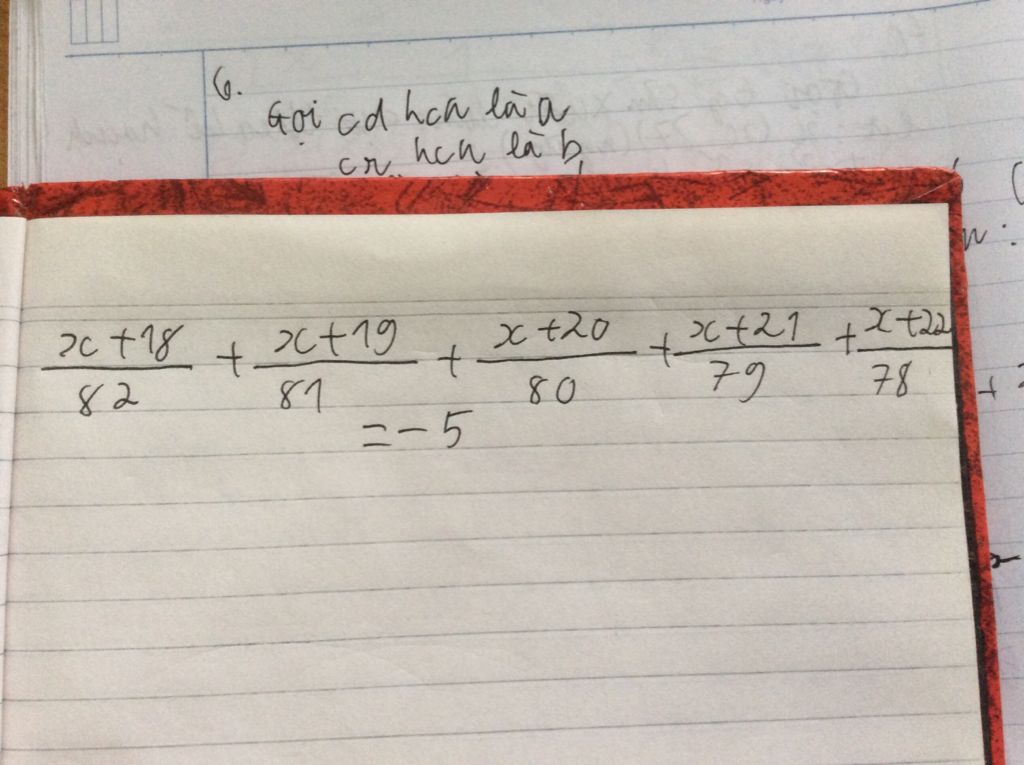 6.
Gọi cd hcn là a
cr hcn là b
x+18/82 + x+19/81 + x+20/80 + x+21/79 + x+22/78
= -5